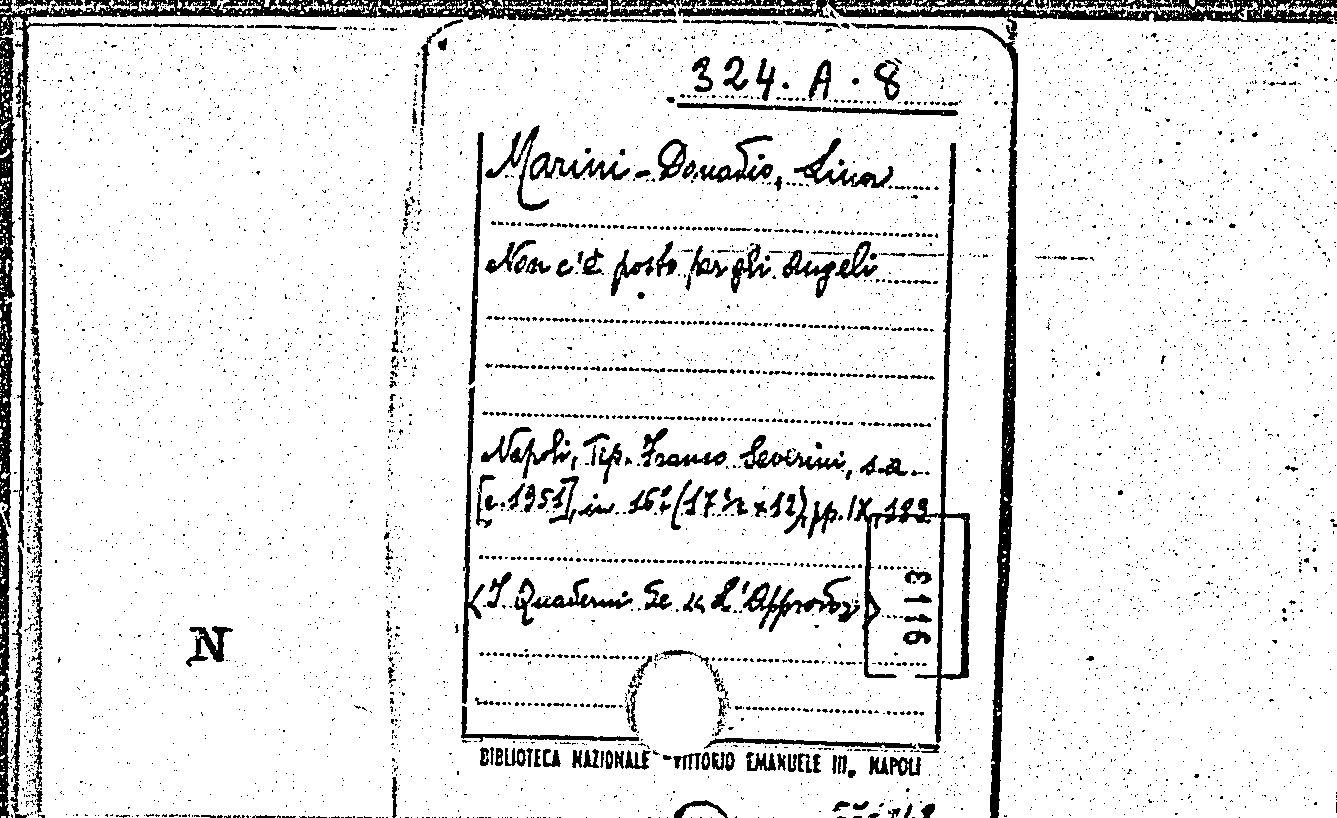 324. A. 8
Marini-Donadio, Lina
Non c'è posto per gli angeli
Napoli, Tip. Franco Severini, s.a.
[c. 1951], in 16º (17½ x 12), pp. IX, 182
(I Quaderni de « L'Approdo»)
3113
N
BIBLIOTECA NAZIONALE - VITTORIO EMANUELE III. NAPOLI